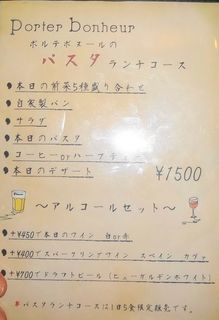 porter bonheur
ポルテボヌールの
パスタランチコース
本日の前菜5種盛り合わせ
自家製パン
サラダ
本日のパスタ
コーヒーorハーブティー
本日のデザート
¥1500
～アルコールセット～
+¥450で本日のワイン 白or赤
+¥400でスパークリングワイン スペイン カヴァ
+¥700でドラフトビール(ヒューガルデンホワイト)
*パスタランチコースは1日5食限定販売です。